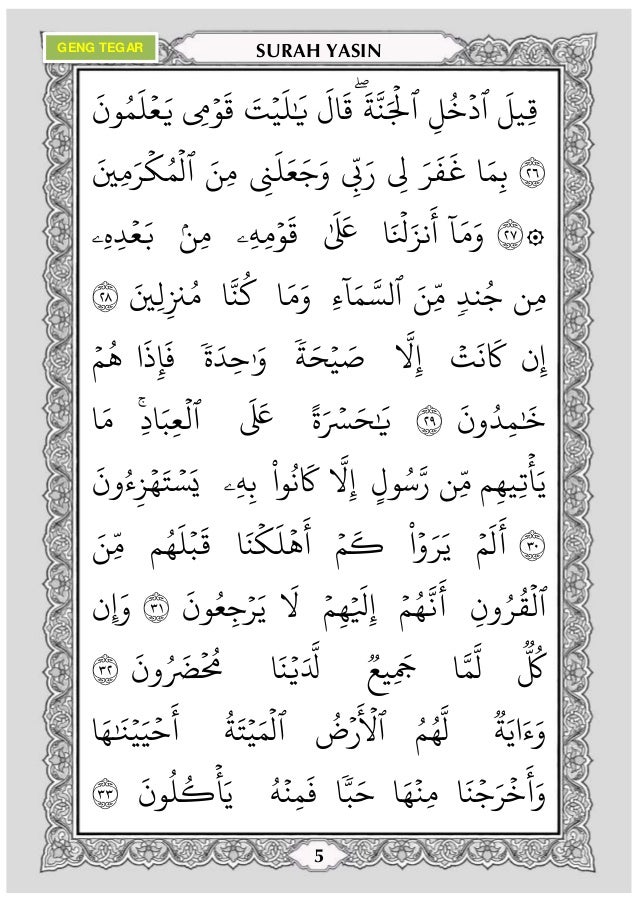 GENG TEGAR
SURAH YASIN
قِيلَ ٱدْخُلِ ٱلْجَنَّةَ ۖ قَالَ يَـٰلَيْتَ قَوْمِى يَعْلَمُونَ
٢٦ بِمَا غَفَرَ لِى رَبِّى وَجَعَلَنِى مِنَ ٱلْمُكْرَمِينَ
۞ ٢٧ وَمَآ أَنزَلْنَا عَلَىٰ قَوْمِهِۦ مِنۢ بَعْدِهِۦ
مِن جُندٍ مِّنَ ٱلسَّمَآءِ وَمَا كُنَّا مُنزِلِينَ ٢٨
إِن كَانَتْ إِلَّا صَيْحَةً وَٰحِدَةً فَإِذَا هُمْ
خَـٰمِدُونَ ٢٩ يَـٰحَسْرَةً عَلَى ٱلْعِبَادِ ۚ مَا
يَأْتِيهِم مِّن رَّسُولٍ إِلَّا كَانُوا۟ بِهِۦ يَسْتَهْزِءُونَ
٣٠ أَلَمْ يَرَوْا۟ كَمْ أَهْلَكْنَا قَبْلَهُم مِّنَ
ٱلْقُرُونِ أَنَّهُمْ إِلَيْهِمْ لَا يَرْجِعُونَ ٣١ وَإِن
كُلٌّ لَّمَّا جَمِيعٌ لَّدَيْنَا مُحْضَرُونَ ٣٢
وَءَايَةٌ لَّهُمُ ٱلْأَرْضُ ٱلْمَيْتَةُ أَحْيَيْنَـٰهَا
وَأَخْرَجْنَا مِنْهَا حَبًّا فَمِنْهُ يَأْكُلُونَ ٣٣
5